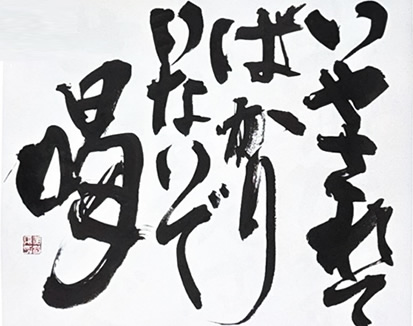 いやされて
ばかり
いないで
喝